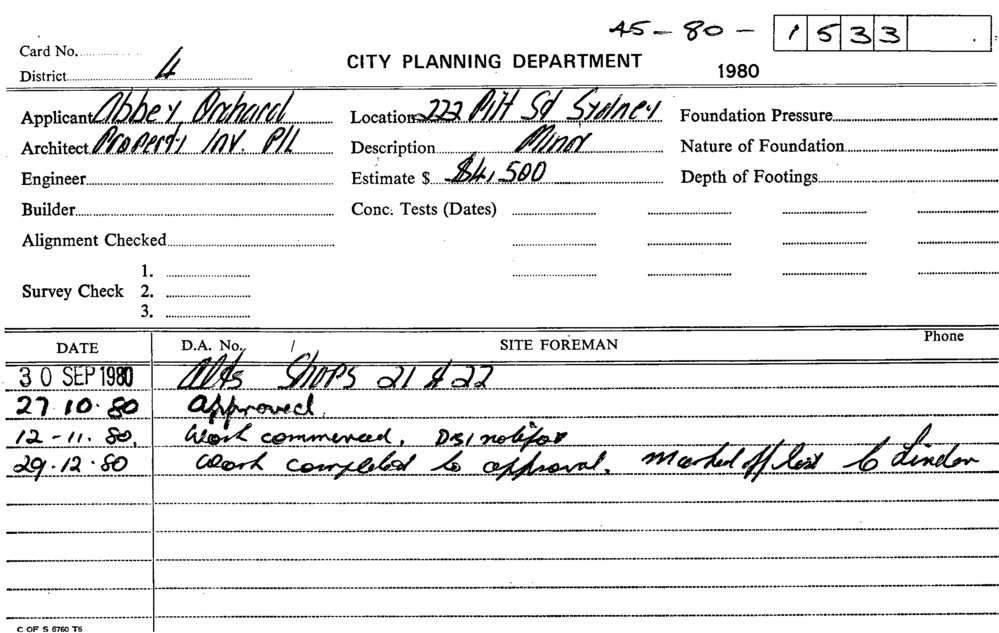 45-80- 1533
Card No.
District 4
CITY PLANNING DEPARTMENT
1980
Applicant Abbey Orchard
Location 222 Pitt St Sydney
Foundation Pressure
Architect Property Inv. P/L
Description Minor
Nature of Foundation
Engineer
Estimate $ $4,500
Depth of Footings
Builder
Conc. Tests (Dates)
Alignment Checked
Survey Check 1.
2.
3.
DATE D.A. No. / SITE FOREMAN Phone
30 SEP 1980 Alts Shops 21 & 22
27.10.80 Approved.
12-11.80. Work commenced.
29.12.80 Work completed to approval. Marked off list
C OF S 6760 T6